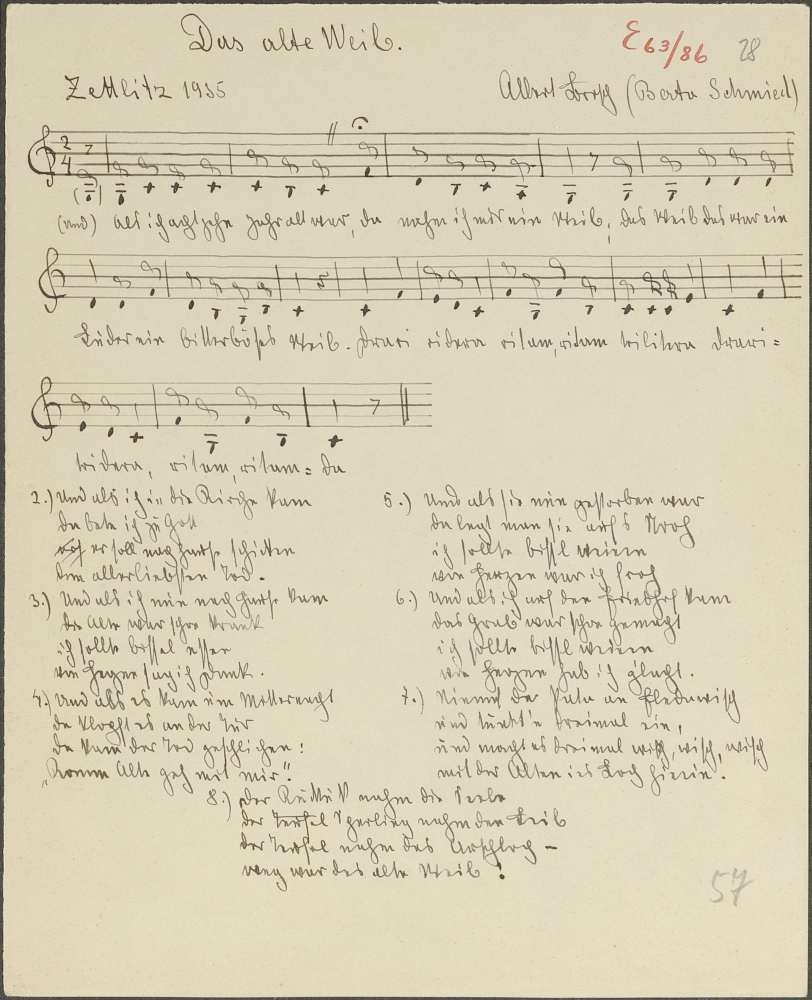 Das alte Weib.
E 63/86 28
Zettlitz 1935
Albert Brosch (Berta Schmied)
(und) als ich achtzehn Jahr alt war, da nahm ich mir ein Weib, das Weib das war ein
Luder ein bitterböses Weib. Drari ridera ritam, ritam triliterra drari=
tridera, ritam, ritam=da
2.) Und als ich in die Kirche kam
da bete ich zu Gott
er soll nach Hause schicken
dem allerliebsten Tod.
3.) Und als ich nun nach Hause kam
die Alte war schon krank
ich sollte bissel essen
von Herzen sag ich Dank.
4.) Und als es kam um Mitternacht
da klopft es an der Tür
da kam der Tod geschlichen:
„Komm Alte geh mit mir".
5.) Und als sie nun gestorben war
da legt man sie aufs Stroh
ich sollte bissl weinen
von Herzen war ich froh
6.) Und als ich auf den Friedhof kam
das Grab war schon gemacht
ich sollte bissl weinen
von Herzen hab ich glacht.
7.) Nimmt der Pater an Flederwisch
und tunkt'n dreimal ein,
und macht es dreimal wisch, wisch, wisch
mit der Alten ins Loch hinein.
8.) Der Kuckuck nahm die Seele
der Sperling nahm den Leib
der Teufel nahm das Arschloch –
weg war das alte Weib!
57